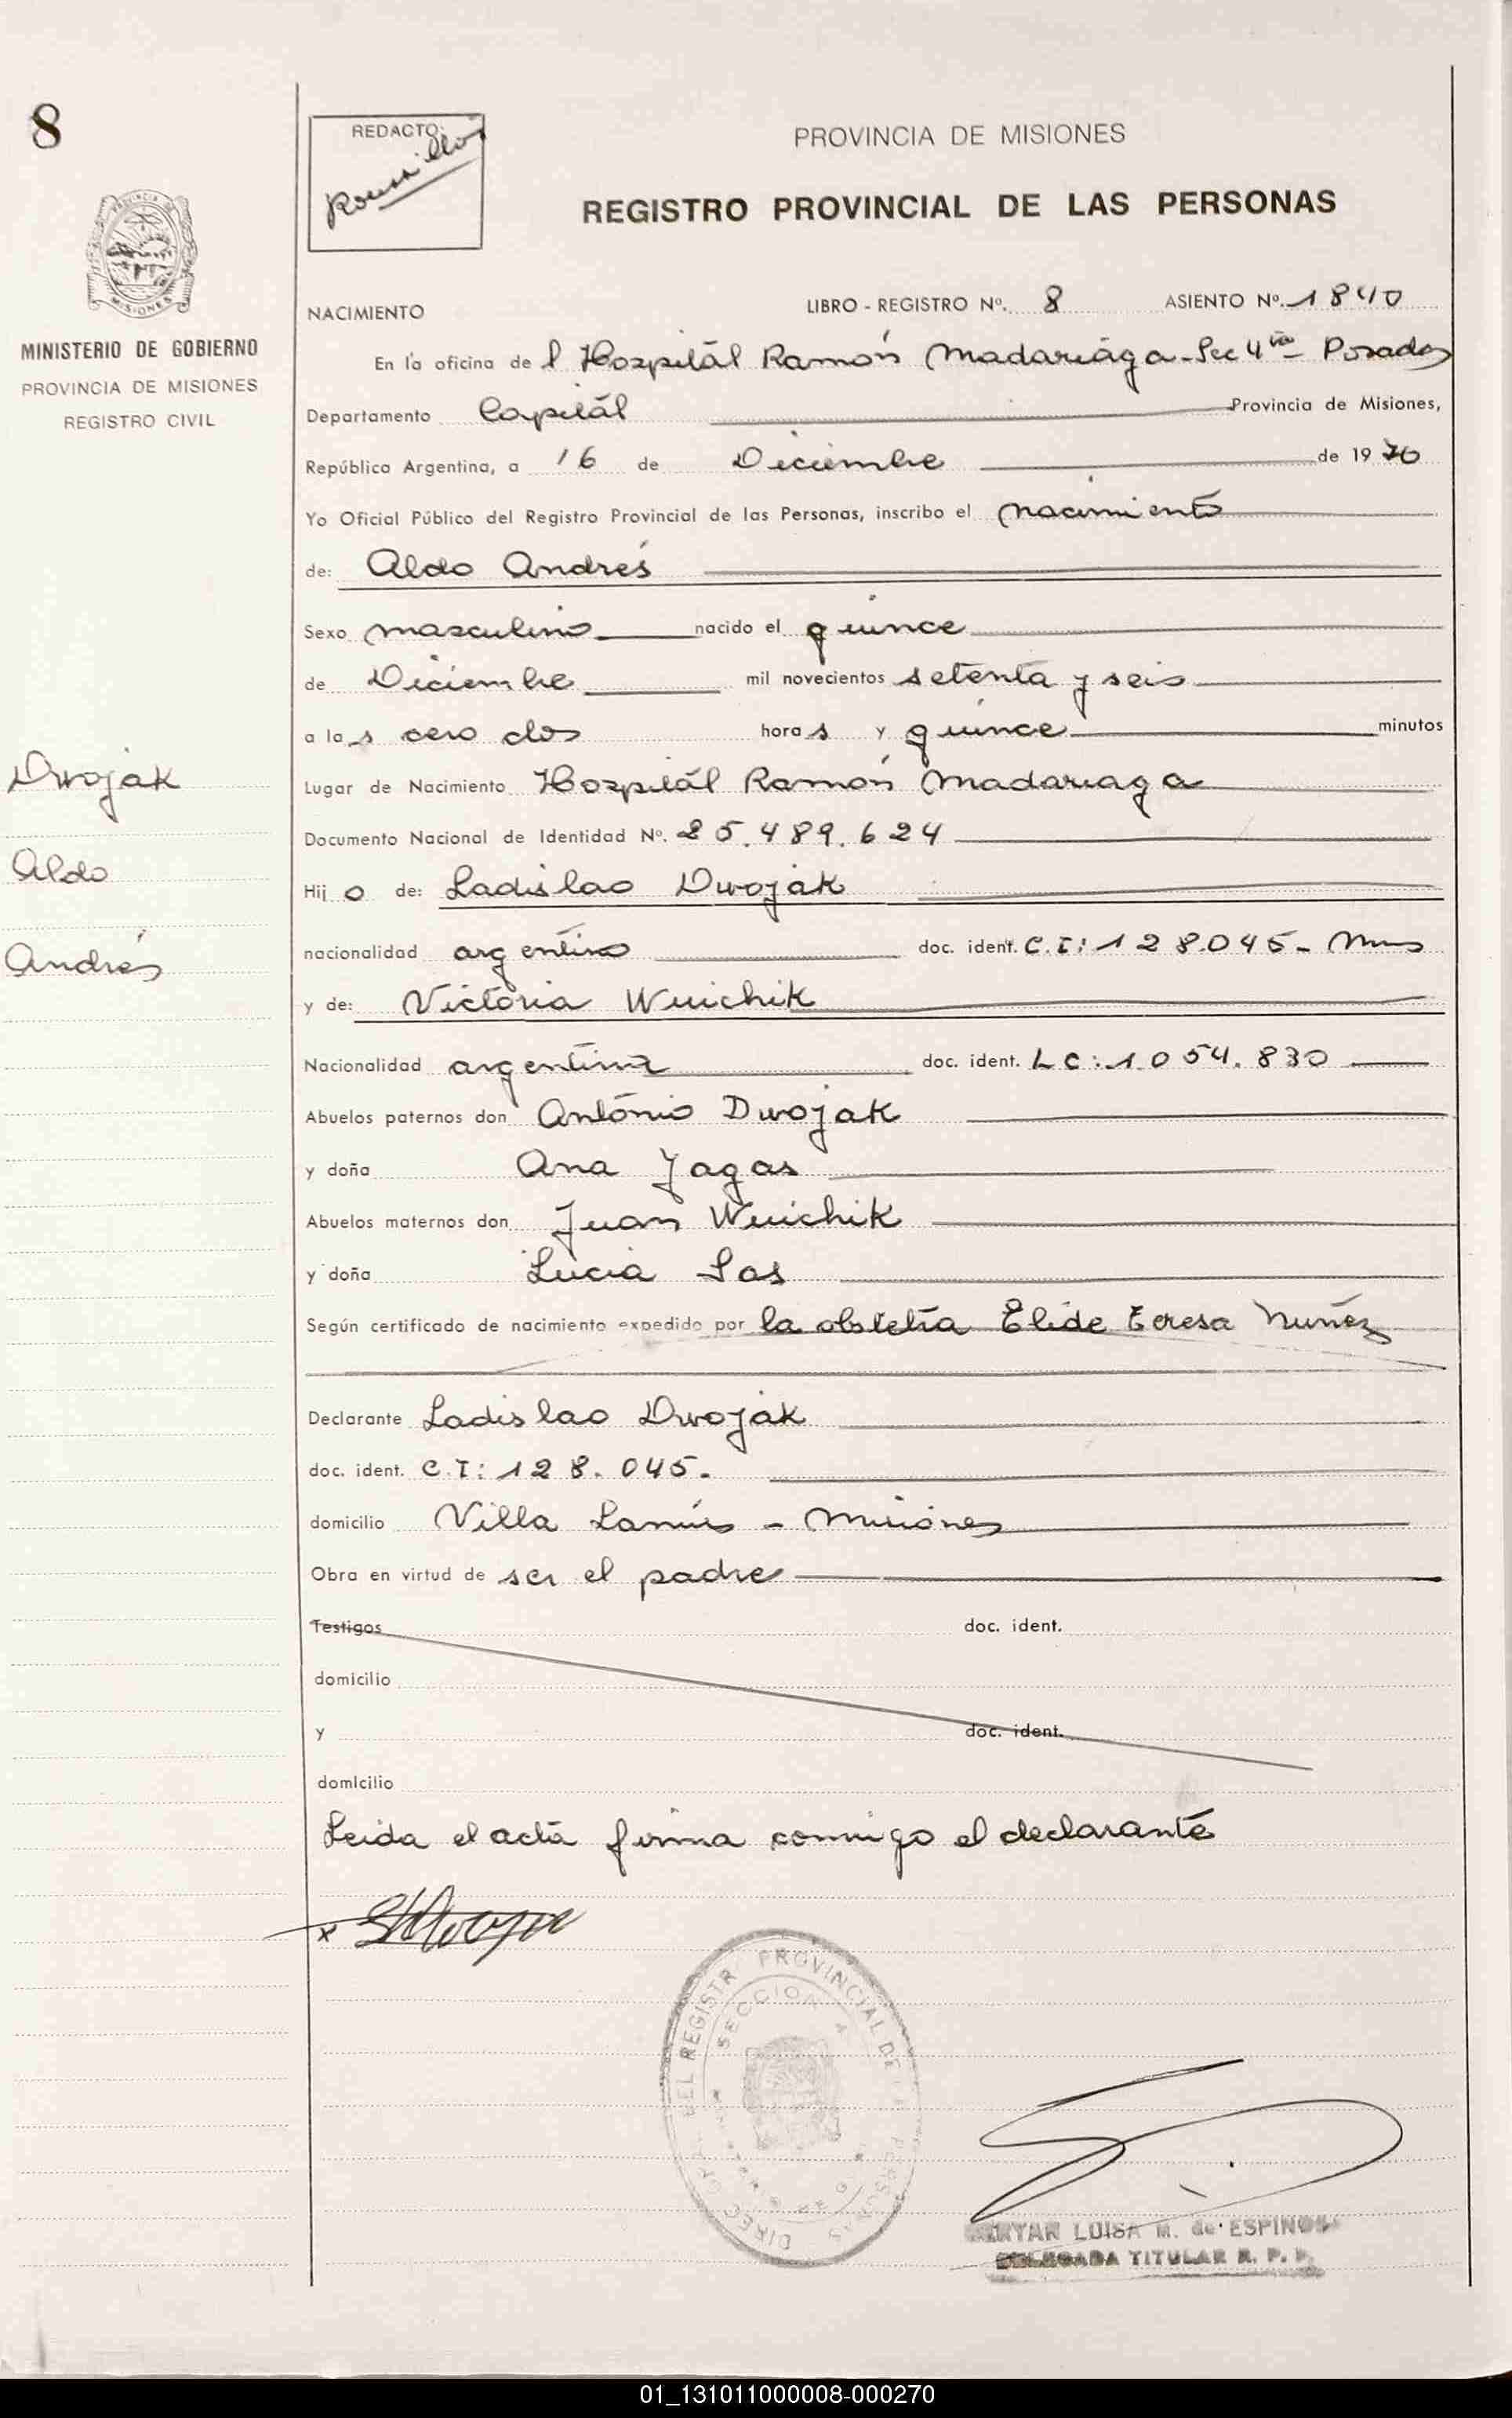 8
REDACTO:
PROVINCIA DE MISIONES
REGISTRO PROVINCIAL DE LAS PERSONAS
MISIONES
MINISTERIO DE GOBIERNO
PROVINCIA DE MISIONES
REGISTRO CIVIL
NACIMIENTO LIBRO - REGISTRO Nº. 8 ASIENTO Nº. 1840
En la oficina de l Hospital Ramón Madariaga - Sec 4ta - Posadas
Departamento Capital Provincia de Misiones,
República Argentina, a 16 de Diciembre de 19 76
Yo Oficial Público del Registro Provincial de las Personas, inscribo el nacimiento
de: Aldo Andrés
Sexo masculino nacido el quince
de Diciembre mil novecientos setenta y seis
a la s cero dos hora s y quince minutos
Dwojak
Lugar de Nacimiento Hospital Ramón Madariaga
Documento Nacional de Identidad Nº. 25.489.624
Aldo
Hij o de: Ladislao Dwojak
Andrés
nacionalidad argentino doc. ident. C.I: 128.045 - Mnes
y de: Victoria Wuichik
Nacionalidad argentina doc. ident. L C: 1.054.830
Abuelos paternos don Antonio Dwojak
y doña Ana Yagas
Abuelos maternos don Juan Wuichik
y doña Lucia Sas
Según certificado de nacimiento expedido por la obstetra Elide Teresa Nuñez
Declarante Ladislao Dwojak
doc. ident. C.I: 128.045.
domicilio Villa Lanús - Misiones
Obra en virtud de ser el padre
Testigos doc. ident.
domicilio
y doc. ident.
domicilio
Leida el acta firma conmigo el declarante
x
PROVINCIAL DE
SECCION
LUISA M. de ESPINOSA
DELEGADA TITULAR R. P. P.
01_131011000008-000270